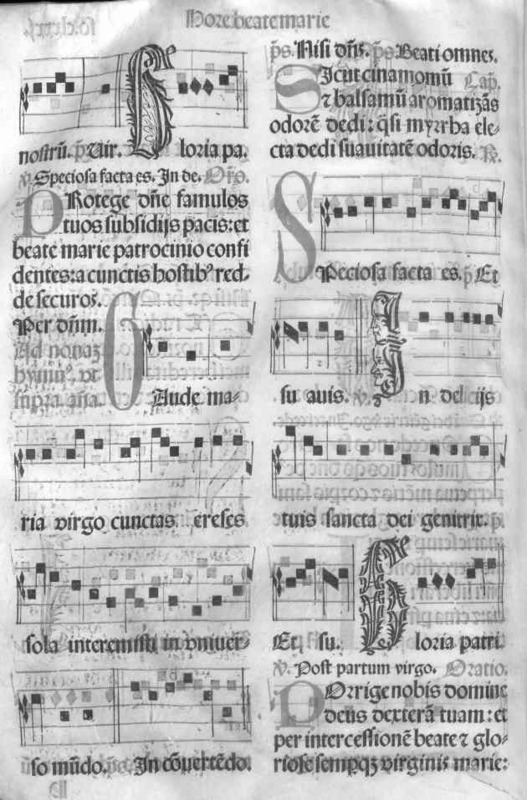 Hore beate marie
nostrũ. p̃. Uir. Gloria pa.
℣. Speciosa facta es. In de. Orõ.
PRotege dñe famulos
tuos subsidijs pacis: et
beate marie patrocinio confi
dentes: a cunctis hostib⁹ red-
de securos.
Per dñm.
Ad nonaȝ
hymn⁹. vt
supra aña.
GAude ma-
ria virgo cunctas ereses
sola interemisti in vniuer-
so mũdo. In cõuertẽdo.
p̃s. Nisi dñs. p̃s. Beati omnes.
SIcut cinamomũ Cap.
⁊ balsamũ aromatizãs
odorẽ dedi: q̃si myrrha ele-
cta dedi suauitatẽ odoris. ℟.
SPeciosa facta es. p̃. Et
su auis. ℣. In delicijs
tuis sancta dei genitrix. p̃.
Et su. Gloria patri.
℣. Post partum virgo. Oratio.
POrrige nobis domine
deus dexterã tuam: et
per intercessionẽ beate ⁊ glo-
riose semperqȝ virginis marie: